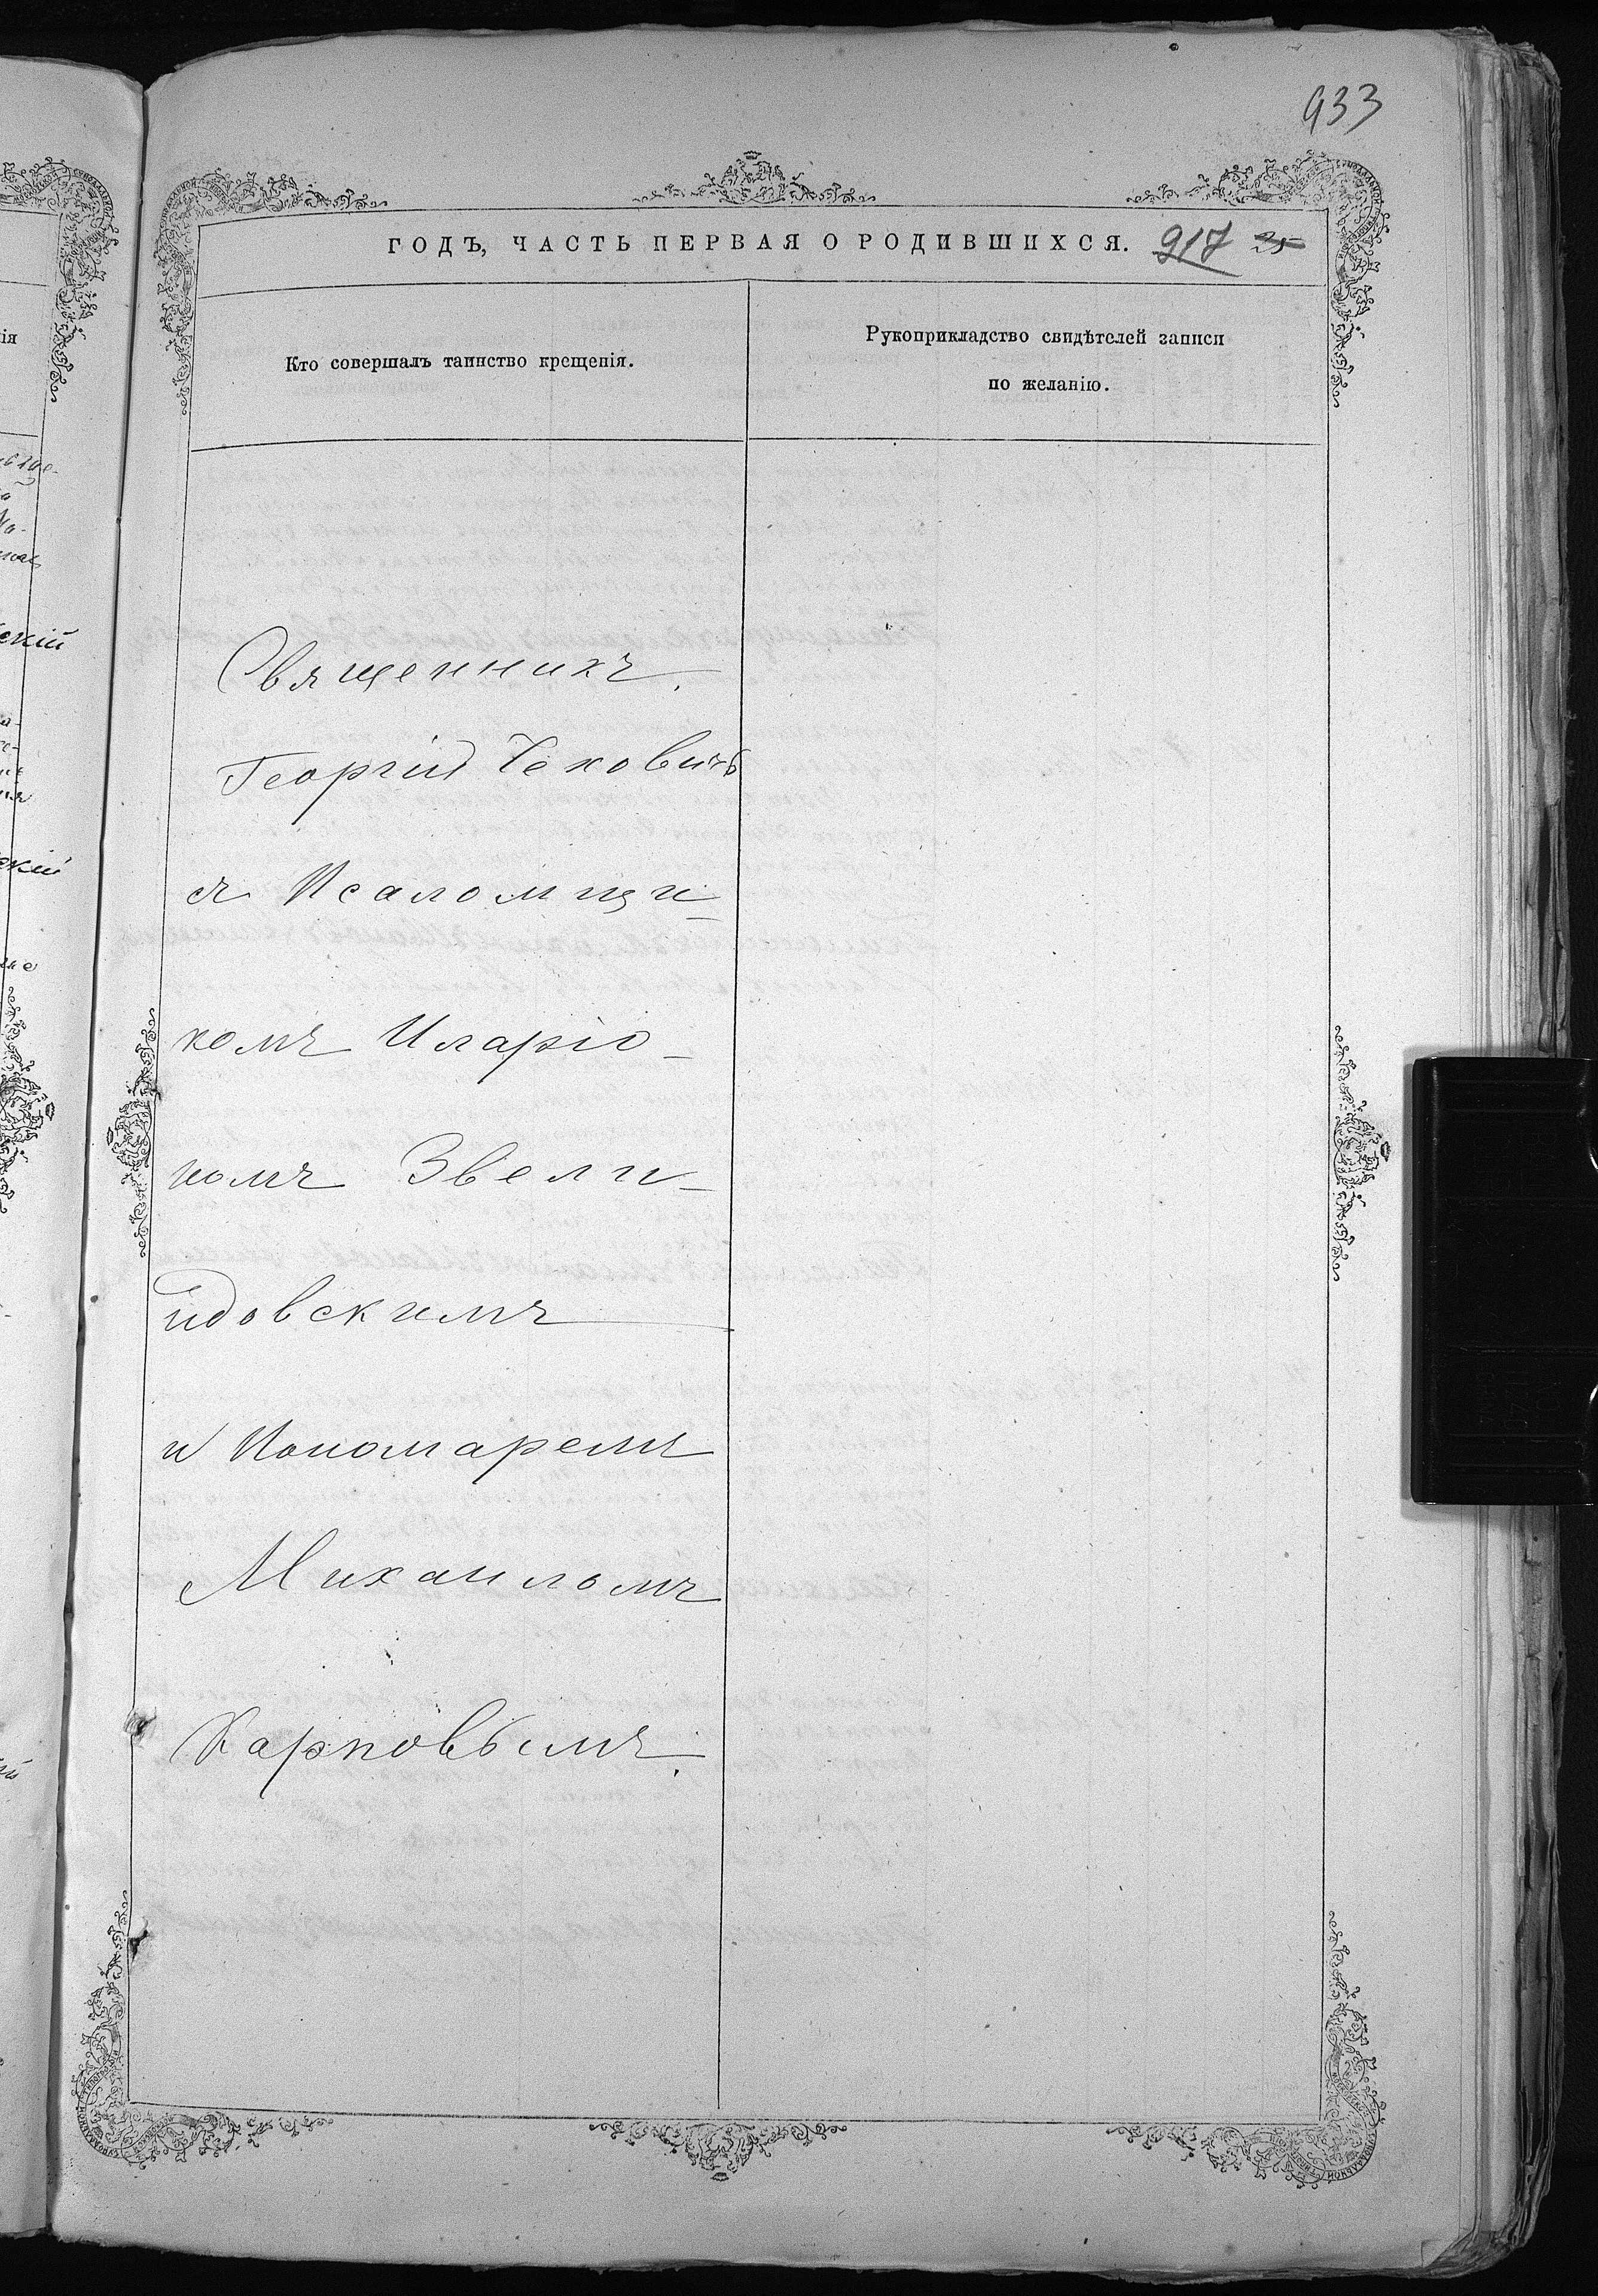 933
ГОДЪ, ЧАСТЬ ПЕРВАЯ О РОДИВШИХСЯ. 917 25
Кто совершалъ таинство крещенія.
Рукоприкладство свидѣтелей записи
по желанію.
Священникъ.
Георгій Чековичъ
съ Псаломщи-
комъ Иларіо-
номъ Звели-
идовскимъ
и Пономаремъ
Михаиломъ
Карповымъ.